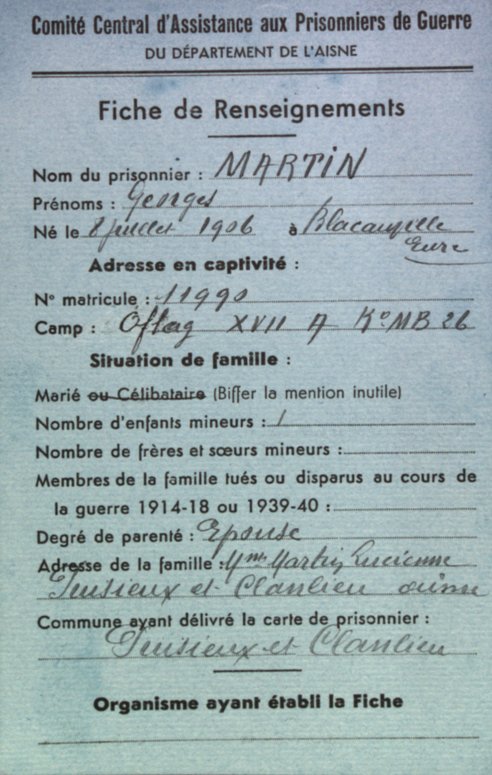 Comité Central d'Assistance aux Prisonniers de Guerre
DU DÉPARTEMENT DE L'AISNE
Fiche de Renseignements
Nom du prisonnier : MARTIN
Prénoms : Georges
Né le 8 juillet 1906 à
Eure
Adresse en captivité :
N° matricule : 11990
Camp : Oflag XVII A Ko MB 26
Situation de famille :
Marié ou Célibataire (Biffer la mention inutile)
Nombre d'enfants mineurs : 1
Nombre de frères et sœurs mineurs :
Membres de la famille tués ou disparus au cours de
la guerre 1914-18 ou 1939-40 :
Degré de parenté : Epouse
Adresse de la famille : Mme Martin Lucienne
et Clanlieu
Commune ayant délivré la carte de prisonnier :
et Clanlieu
Organisme ayant établi la Fiche